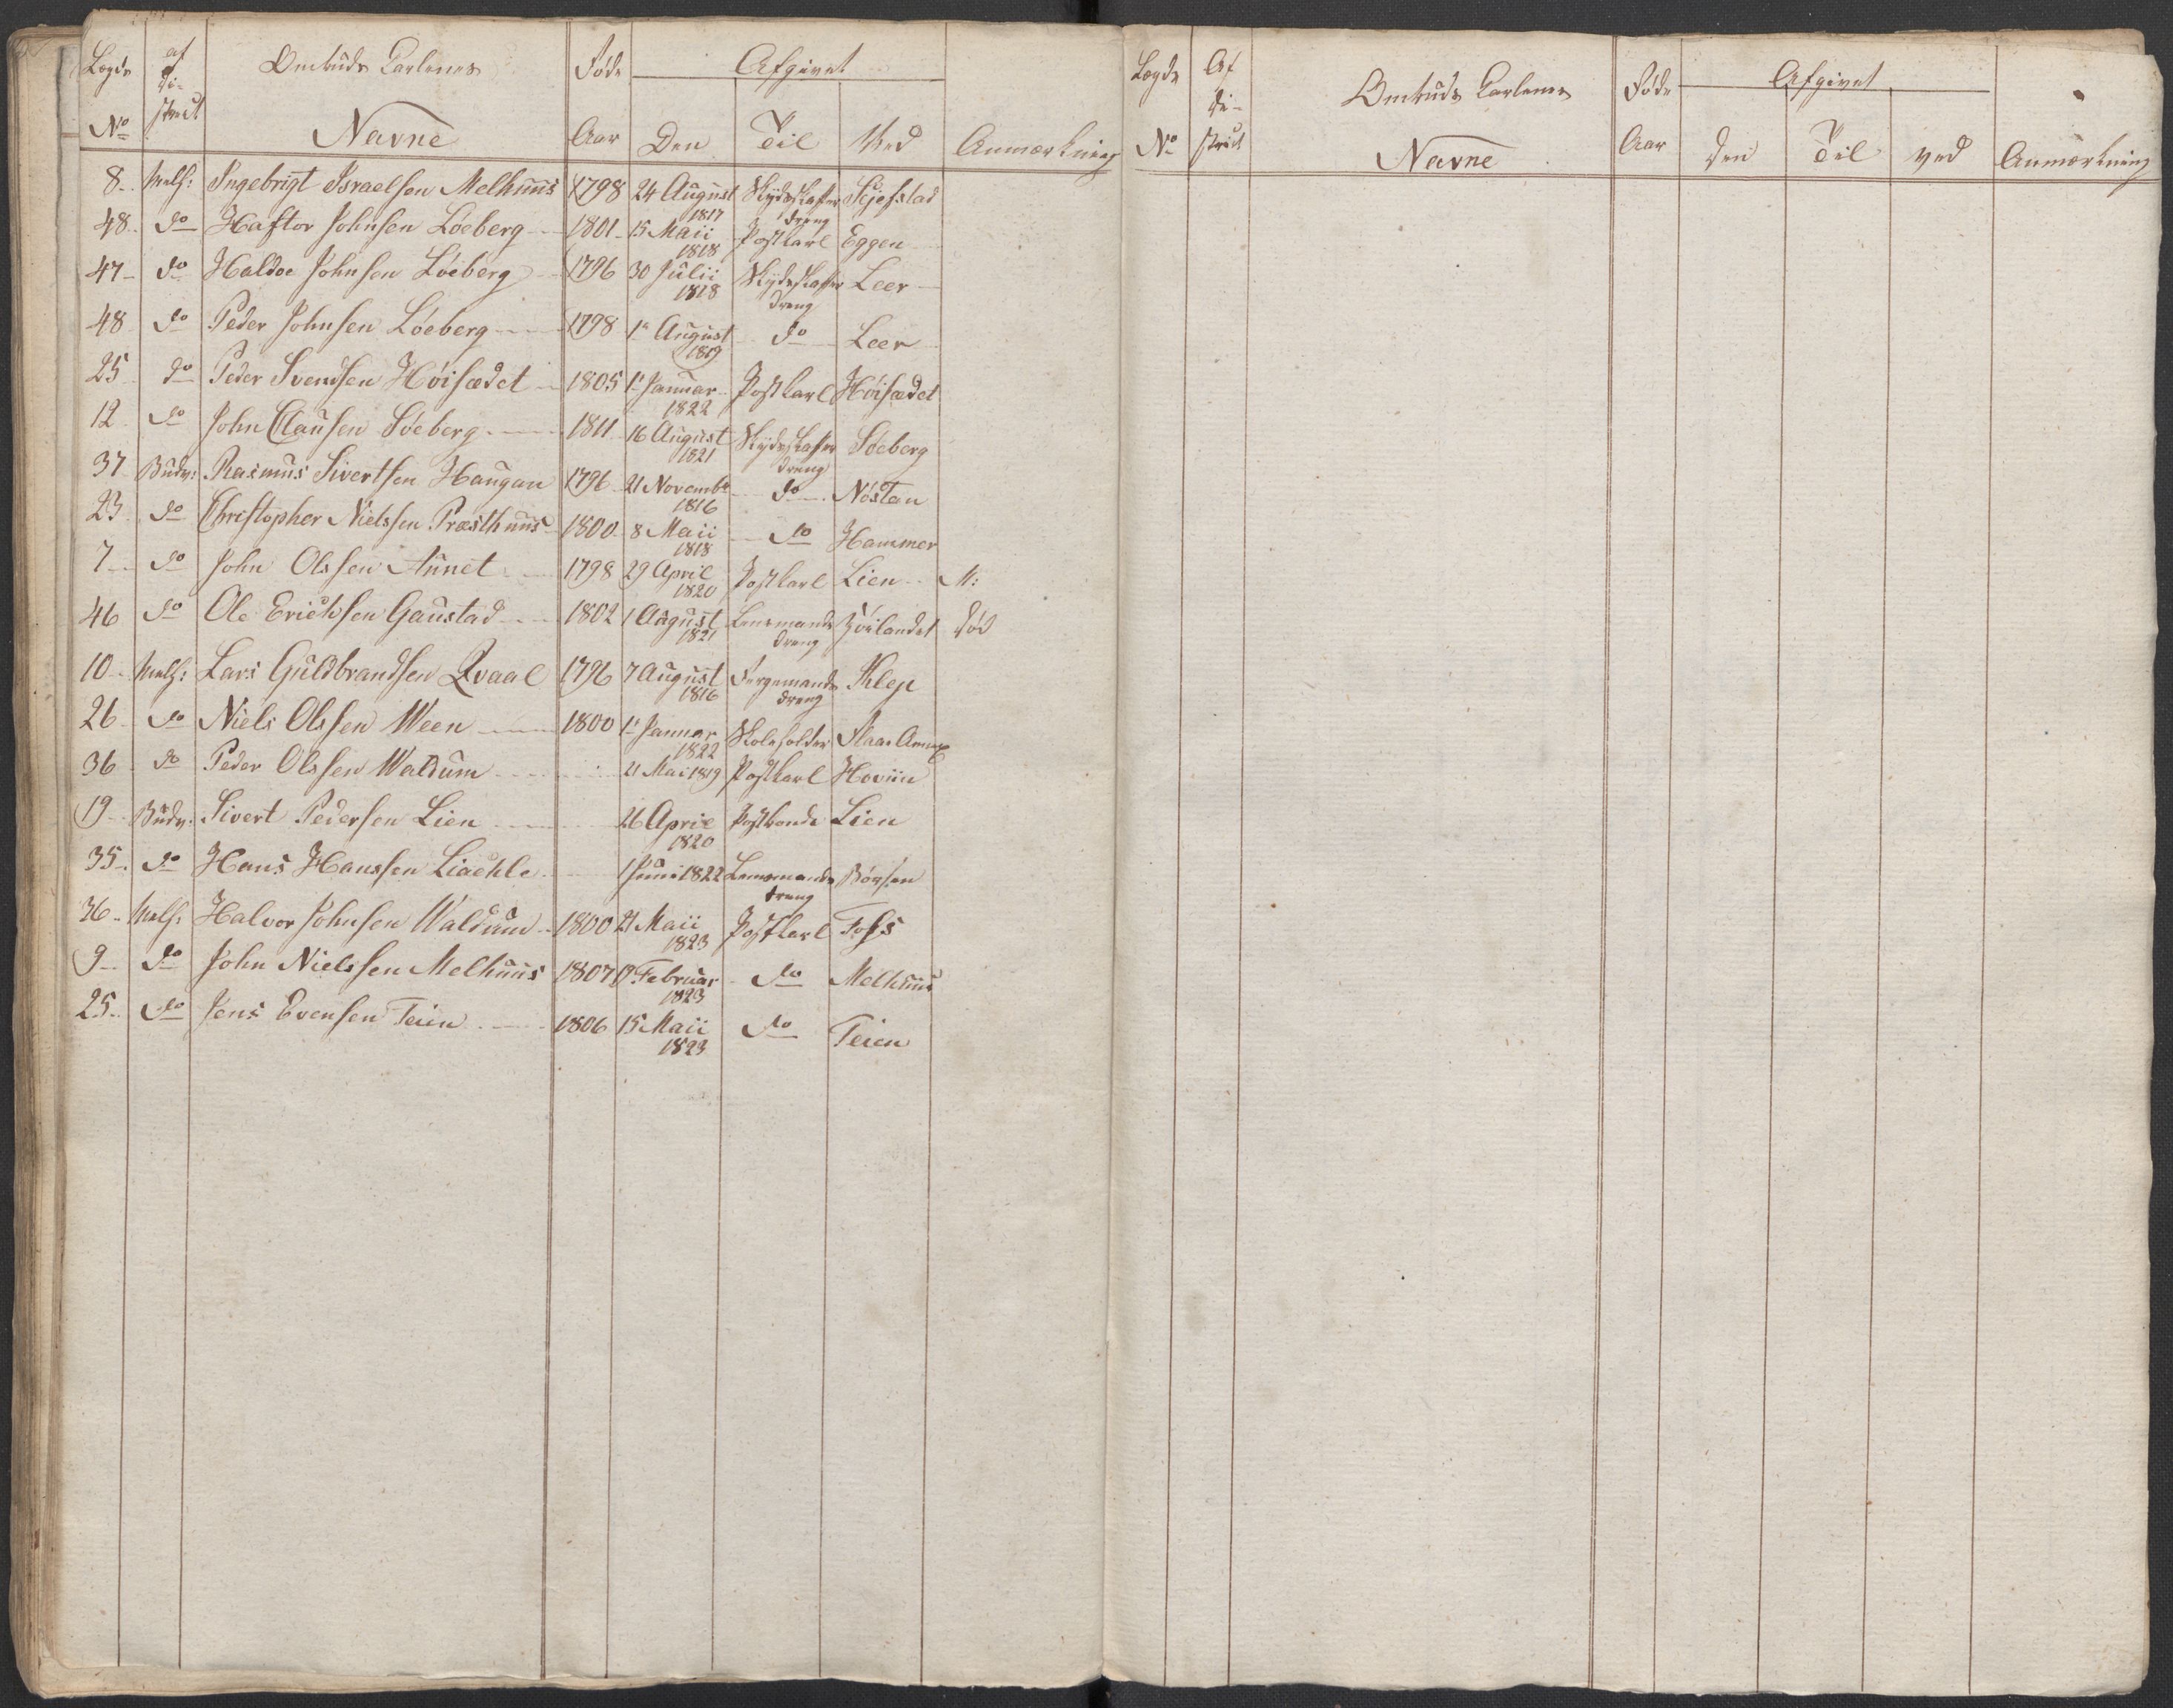 Legds No af Di-strict Omtruds Karlenes Navne Føde Aar Afgivet Den Til Ved Anmærkning
8 Melh: Ingebrigt Israelsen Melhuus 1798 24 August 1817 Skydsskaffer dreng Skjefstad
48 do Haftor Johnsen Løeberg 1801 15 Maii 1818 Postkarl Eggen
47 do Haldoe Johnsen Løeberg 1796 30 Julii 1818 Skydsskaffer dreng Leer
48 do Peder Johnsen Løeberg 1798 1 August 1819 do Leer
25 do Peder Svendsen Høisædet 1805 1 Januar 1822 Postkarl Høisædet
12 do John Clausen Søeberg 1811 16 August 1821 Skydsskaffer dreng Søeberg
37 Budv: Rasmus Sivertsen Haugan 1796 21 Novembr 1816 do Nøstan
23 do Christopher Nielssen Præsthuus 1800 8 Maii 1818 do Hammer
7 do John Olssen Aunet 1798 29 April 1820 Postkarl Lien M:
46 do Ole Erichsen Gaustad 1802 1 August 1821 Lensmands dreng Høilandet Død
10 Melh: Lars Guldbrandsen Qvaal 1796 7 August 1816 Fergemands dreng Klep
26 do Niels Olssen Ween 1800 1 Januar 1822 Skoleholder
36 do Peder Olssen Waldum 21 Mai 1819 Postkarl Hoviin
19 Budv: Sivert Pedersen Lien 26 April 1820 Postbonde Lien
35 do Hans Hanssen Liaehle 1 Juni 1822 Lensmands dreng Børsen
36 Melh: Halvor Johnsen Waldum 1800 21 Maii 1823 Postkarl Foss
9 do John Nielssen Melhuus 1807 17 Februar 1823 do Melhuus
25 do Jens Evensen Teien 1806 15 Maii 1823 do Teien
Legds No Af Di-strict Omtruds Karlenes Navne Føde Aar Afgivet Den Til Ved Anmærkning